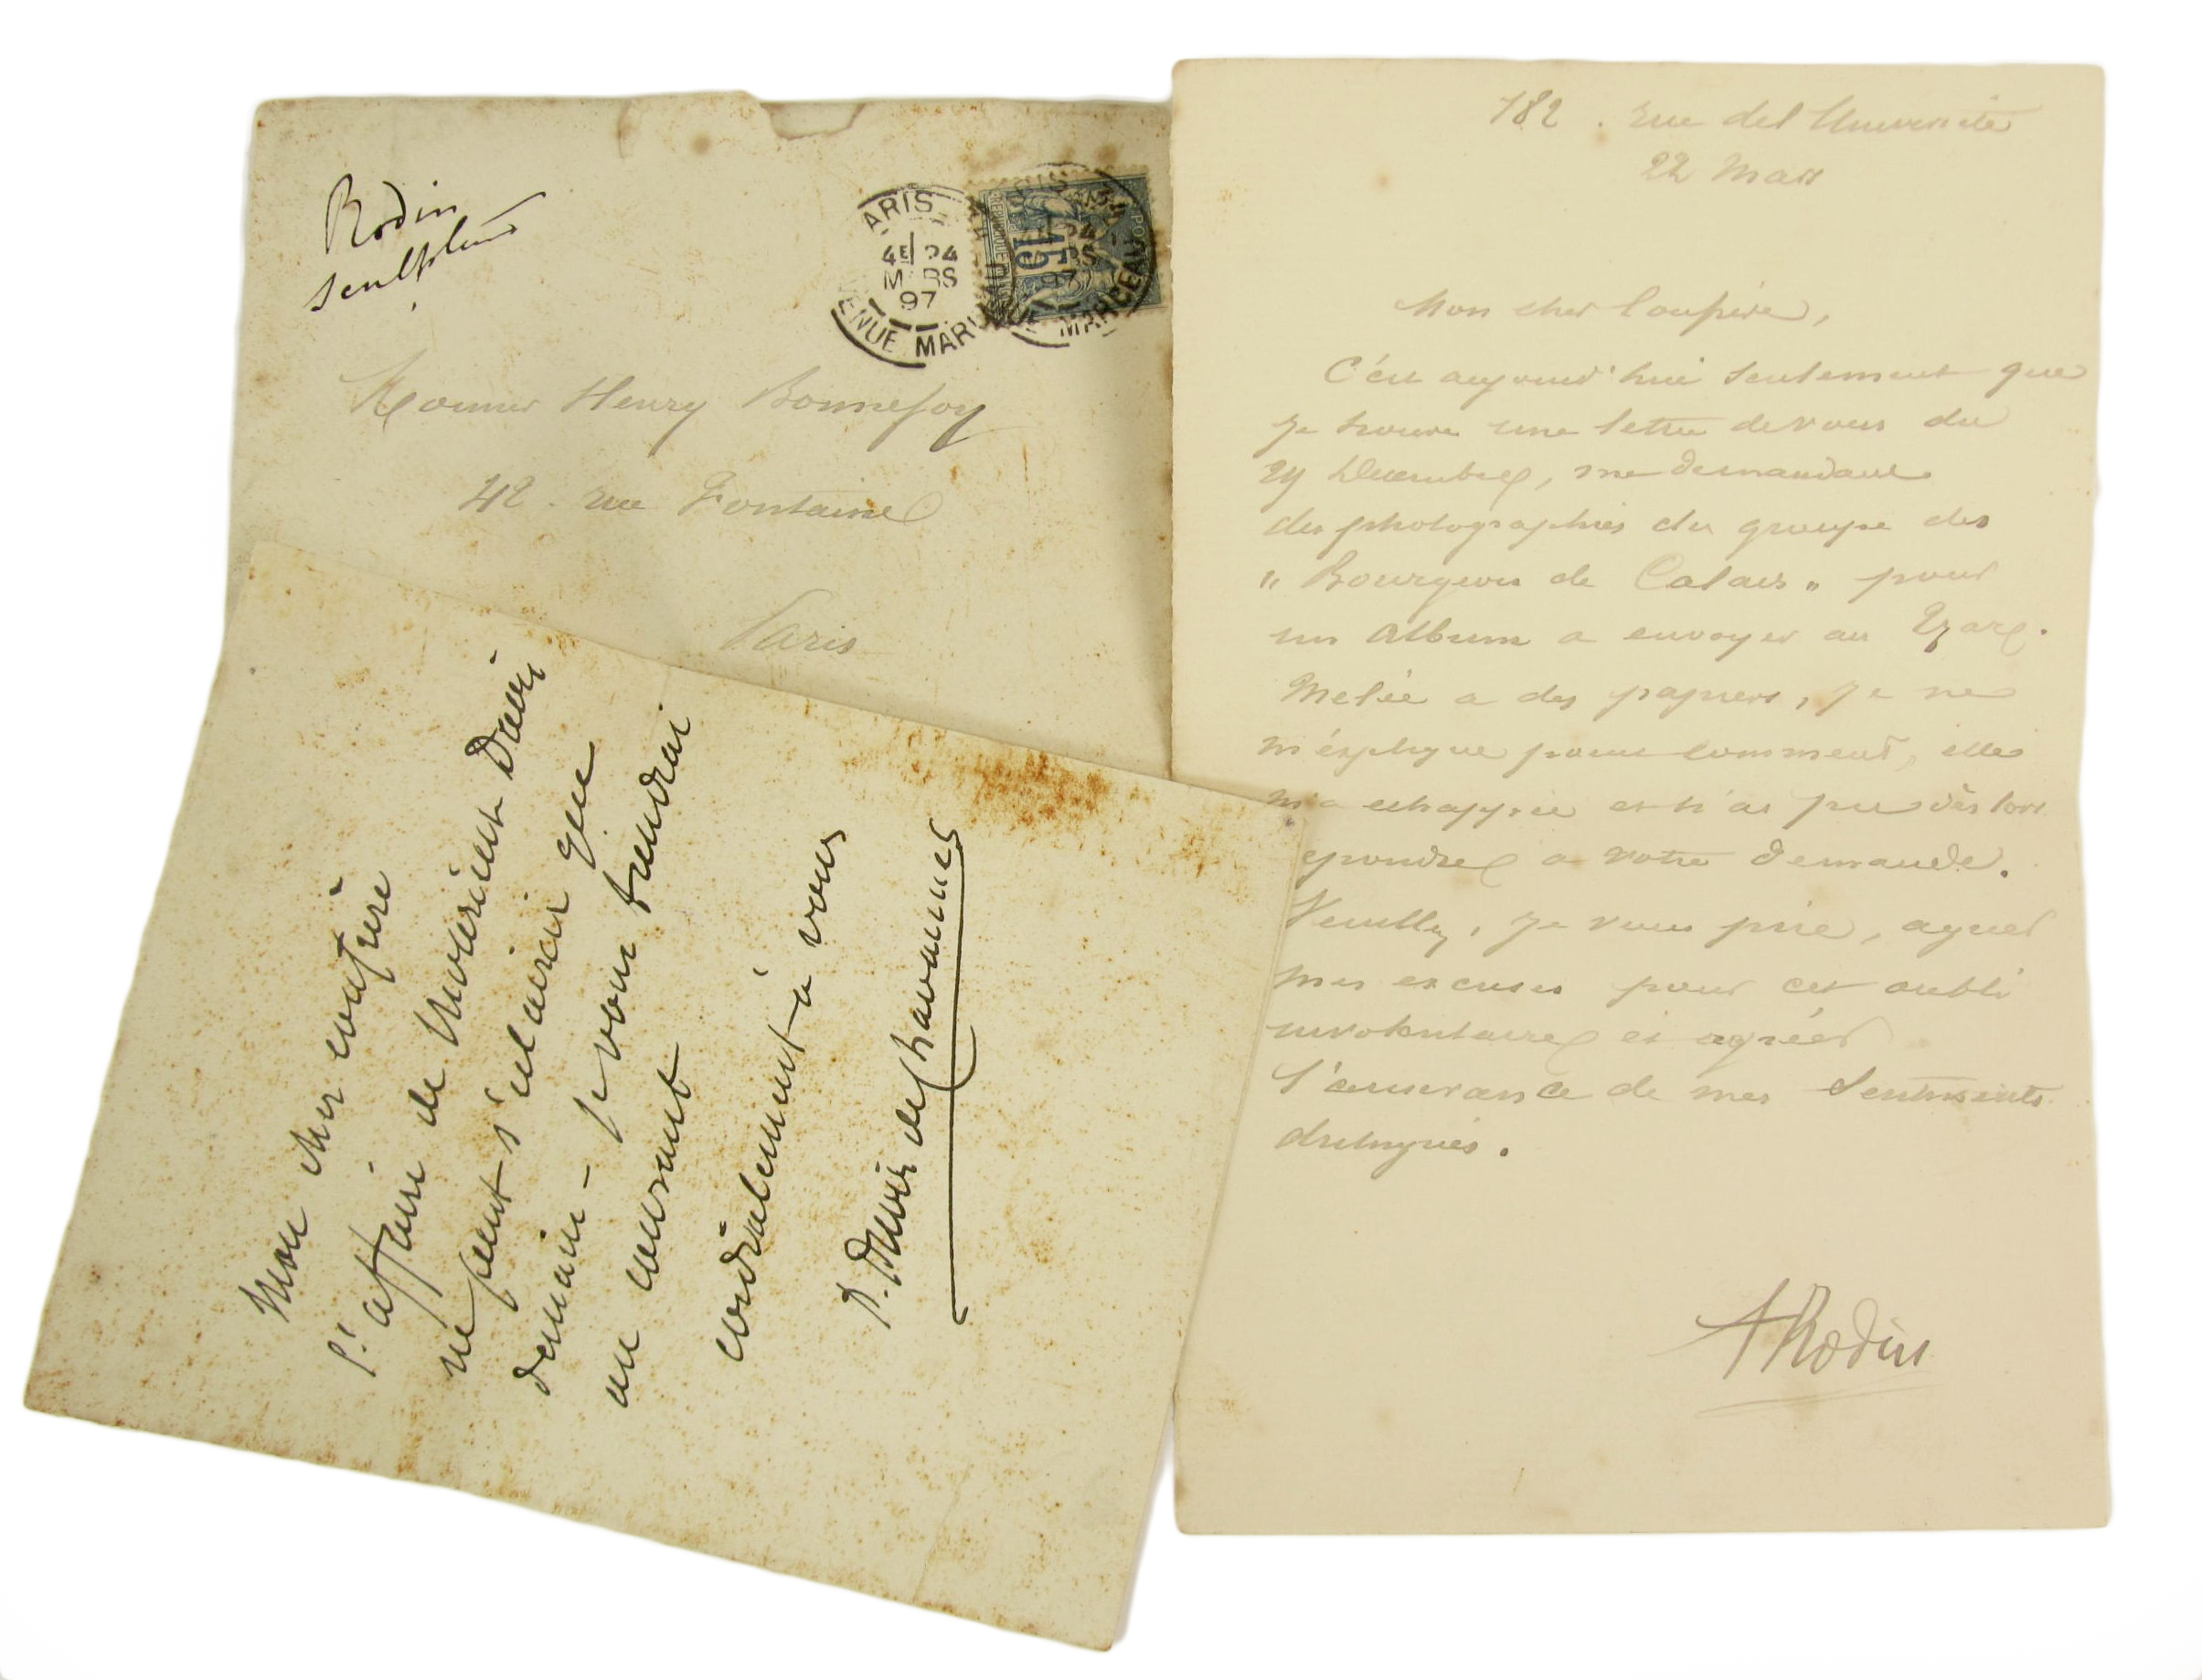 Rodin
sculpteur
PARIS
4E 24
MARS
97
AVENUE MARCEAU
15
Monsieur Henry Bonnefoy
42 . rue Fontaine
Paris
Mon cher confrère
l'affaire de Monsieur
ne peut s'éclaircir que
demain - je vous tiendrai
au courant
cordialement à vous
P. Puvis de Chavannes
182 . rue de l Université
22 Mars
Mon cher Confrère,
C'est aujourd'hui seulement que
je trouve une lettre de vous du
Decembre, me demandant
des photographies du groupe des
" Bourgeois de Calais " pour
un Album a envoyer au Tzar.
Melée a des papiers, je ne
m'éxplique pas comment, elle
m'a echappée et n'ai pu dès lors
epondre a votre demande.
Veuillez, je vous prie, agréer
mes excuses pour cet oubli
involontaire et agréer
l'assurance de mes Sentiments
distingués.
A Rodin